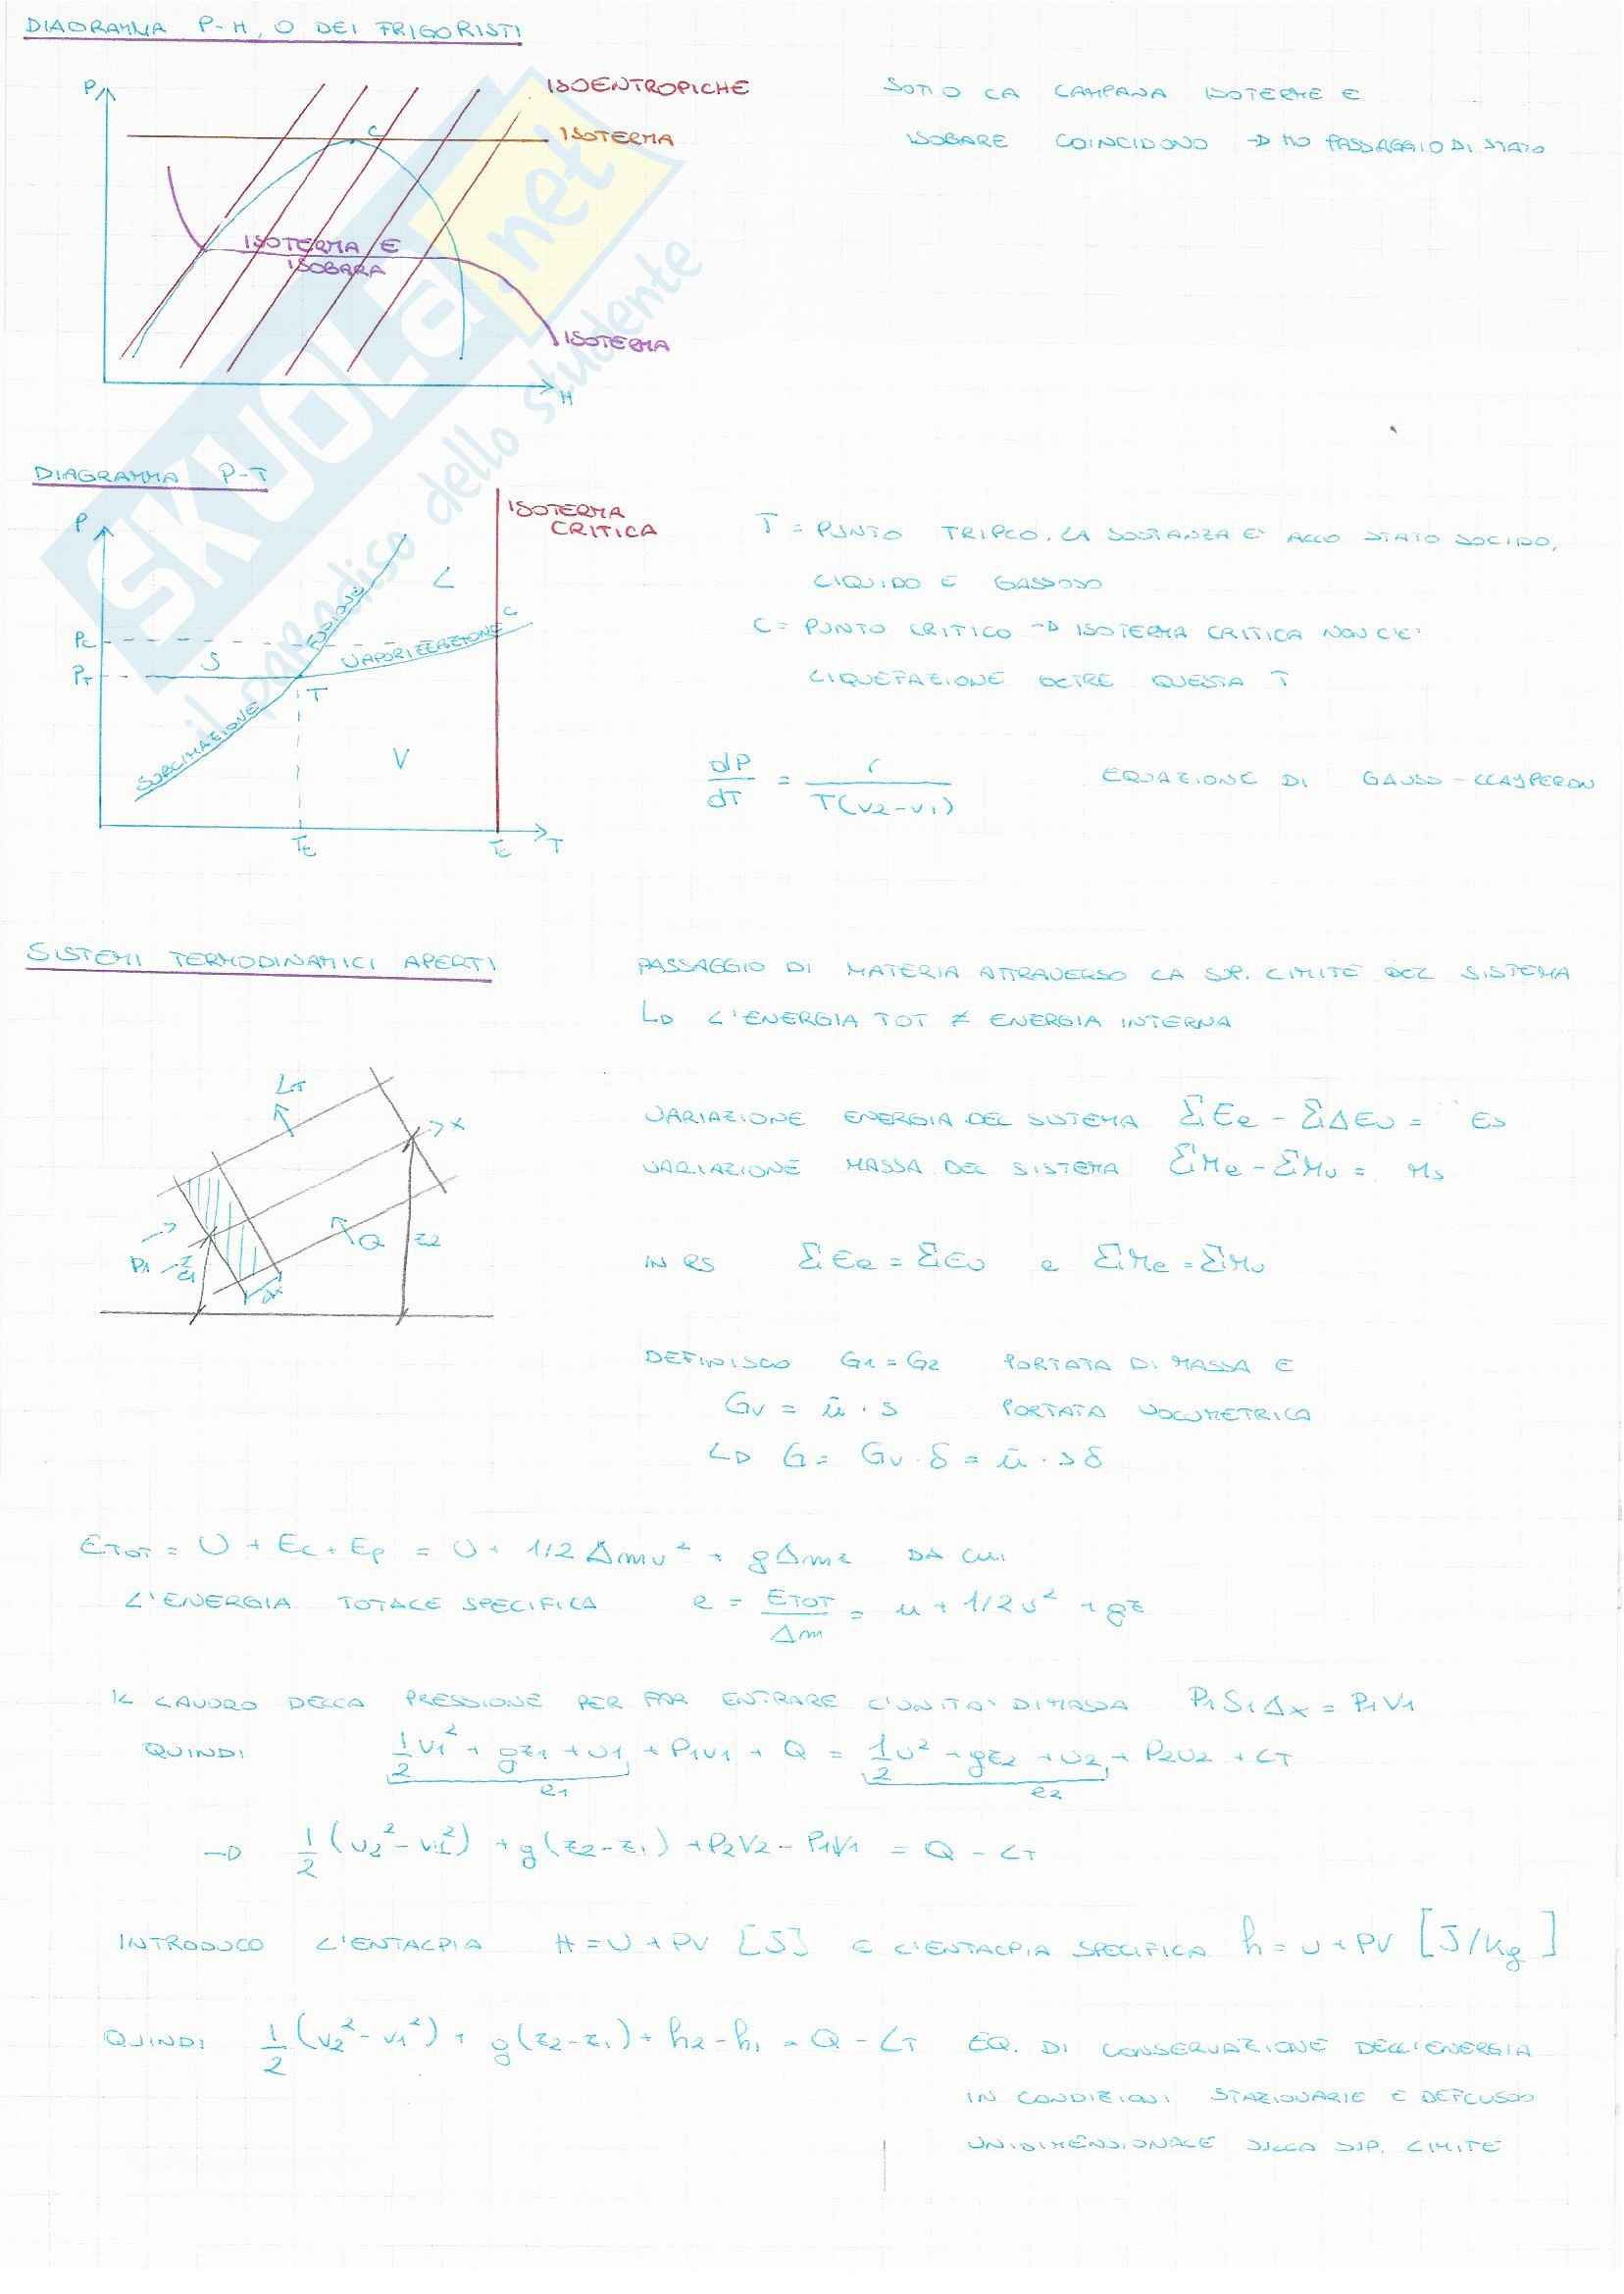 DIAGRAMMA P-H, O DEI FRIGORISTI
P
C
ISOENTROPICHE
ISOTERMA
ISOTERMA E
ISOBARA
ISOTERMA
H
SOTTO LA CAMPANA ISOTERME E
ISOBARE COINCIDONO → HO PASSAGGIO DI STATO
SKUOLA.net
il paradiso dello studente
DIAGRAMMA P-T
P
ISOTERMA
CRITICA
L
FUSIONE
C
Pc
S
VAPORIZZAZIONE
PT
T
SUBLIMAZIONE
V
Tt
Tc
T
T = PUNTO TRIPLO. LA SOSTANZA E' ALLO STATO SOLIDO,
LIQUIDO E GASSOSO
C = PUNTO CRITICO → ISOTERMA CRITICA NON C'E'
LIQUEFAZIONE OLTRE QUESTA T
dP/dT = r/T(v2-v1) EQUAZIONE DI GAUSS-CLAYPERON
SISTEMI TERMODINAMICI APERTI
PASSAGGIO DI MATERIA ATTRAVERSO LA SUP. LIMITE DEL SISTEMA
↳ L'ENERGIA TOT ≠ ENERGIA INTERNA
LT
x
Q
z2
P1
z1
VARIAZIONE ENERGIA DEL SISTEMA ΣEe - ΣΔEu = Es
VARIAZIONE MASSA DEL SISTEMA ΣMe - ΣMu = Ms
IN RS ΣEe = ΣEu e ΣMe = ΣMu
DEFINISCO G1 = G2 PORTATA DI MASSA E
Gv = ū · S PORTATA VOLUMETRICA
↳ G = Gv · δ = ū · S δ
ETOT = U + Ec + Ep = U + 1/2 Δmv² + gΔmz DA CUI
L'ENERGIA TOTALE SPECIFICA e = ETOT/Δm = u + 1/2 v² + gz
IL LAVORO DELLA PRESSIONE PER FAR ENTRARE L'UNITA' DI MASSA P1S1Δx = P1V1
QUINDI 1/2 v1² + gz1 + u1 + P1v1 + Q = 1/2 v² + gz2 + u2 + P2v2 + LT
e1 e2
→ 1/2 (v2² - v1²) + g(z2-z1) + P2V2 - P1V1 = Q - LT
INTRODUCO L'ENTALPIA H = U + PV [J] E L'ENTALPIA SPECIFICA h = u + PV [J/kg]
QUINDI 1/2 (v2² - v1²) + g(z2-z1) + h2-h1 = Q - LT EQ. DI CONSERVAZIONE DELL'ENERGIA
IN CONDIZIONI STAZIONARIE E DEFLUSSO
UNIDIMENSIONALE SULLA SUP. LIMITE